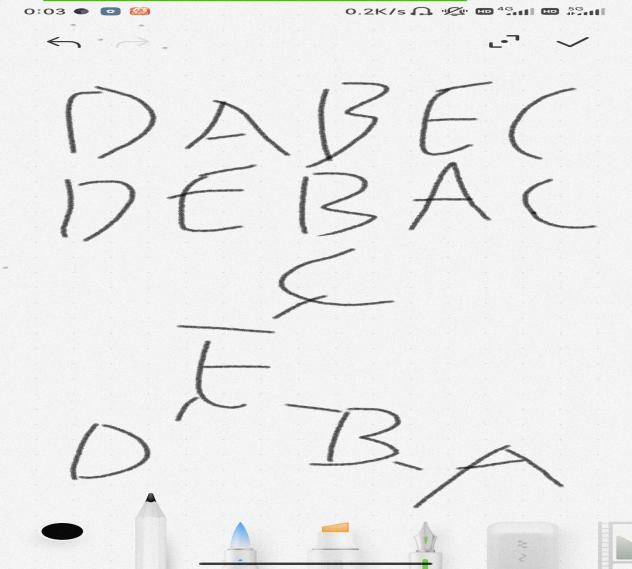 0:03 0.2K/s HD 4G HD 5G
D A B E C
D E B A C
C
E
D B A